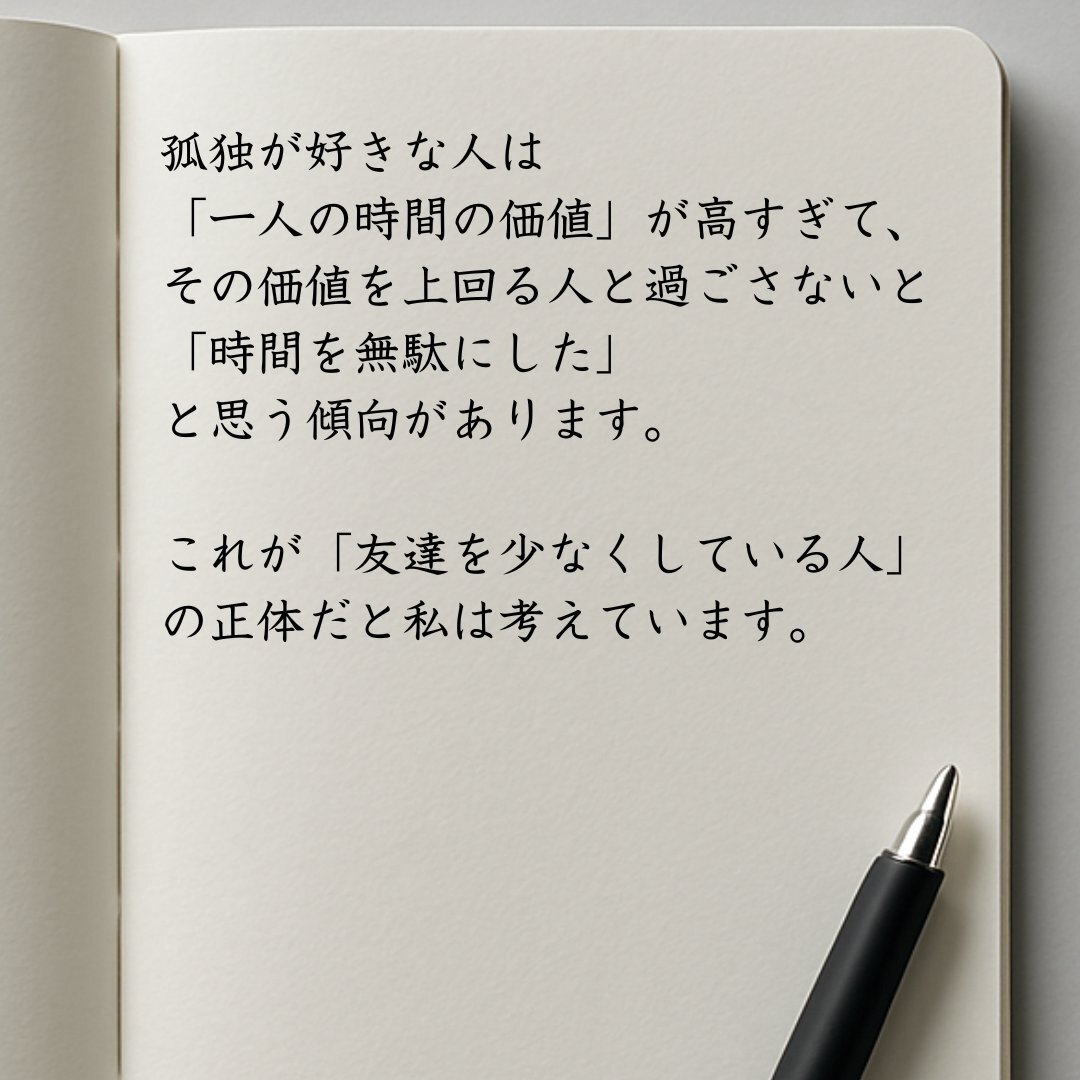 孤独が好きな人は
「一人の時間の価値」が高すぎて、
その価値を上回る人と過ごさないと
「時間を無駄にした」
と思う傾向があります。
これが「友達を少なくしている人」
の正体だと私は考えています。